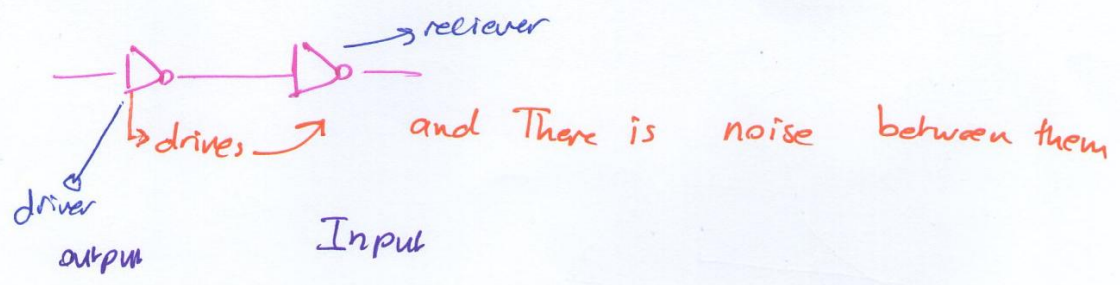 reliever
drives and There is noise between them
driver
output Input